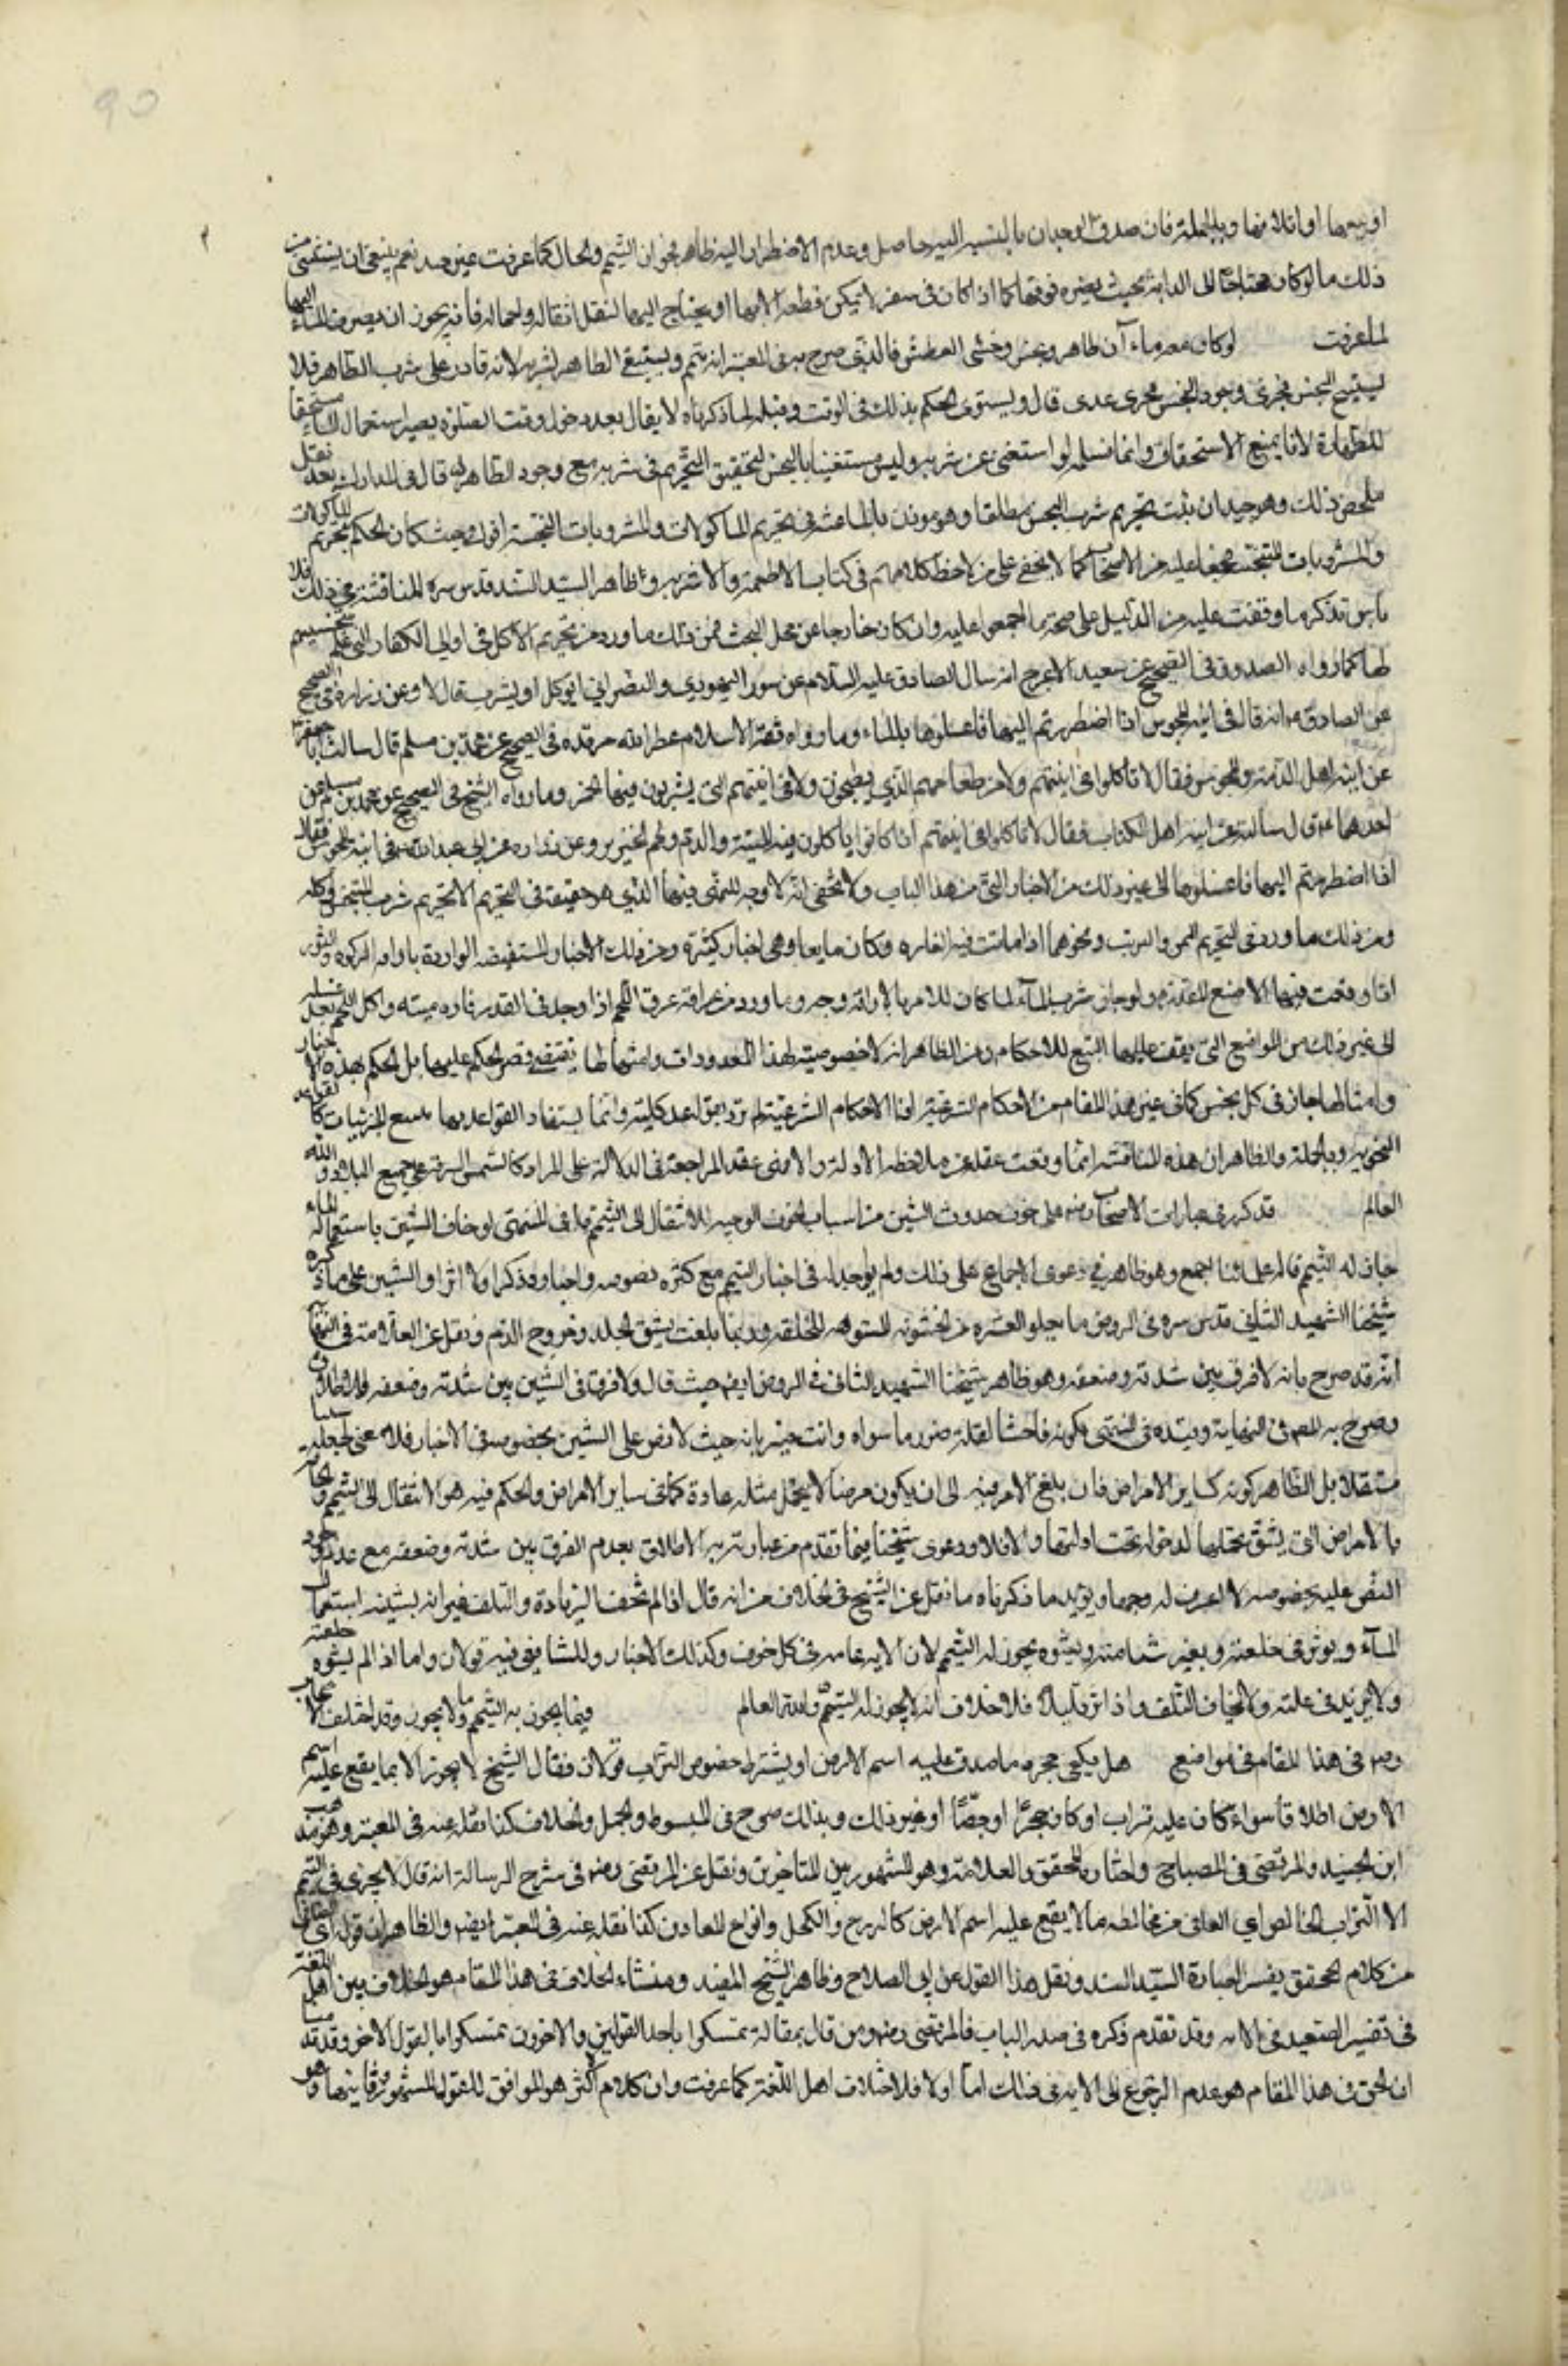 او بيعها او اتلافها وبالجملة فان صدق الوجدان بالنسبة اليه حاصل وعدم الاضطرار اليه ظاهر فجواز التيمم والحال كما عرفت غير جيد نعم ينبغي ان يستثنى من
ذلك ما لو كان محتاجا الى الدابة بحيث يضره فوتها كما اذا كان في سفر لا يمكن قطعه الا بها او يحتاج اليها لنقل اثقاله واحماله فانه يجوز ان يصرف الماء اليها
لما عرفت لو كان معه ماءآن طاهر ونجس وخشي العطش فالذي صرح به في المعتبر انه يتيمم ويستبقي الطاهر لشربه لانه قادر على شرب الطاهر فلا
يستبيح النجس فجرى وجود النجس مجرى عدمه قال ويستوى الحكم بذلك في الوقت وقبله لما ذكرناه لا يقال بعد دخول وقت الصلوة يصير استعمال الماء مستحقا
للطهارة لانا نمنع الاستحقاق وانما نسلمه لو استغنى عن شربه وليس مستغنيا بالنجس لتحقيق التحريم في شربه مع وجود الطاهر قال في المدارك بعد نقل
ملخص ذلك وهو جيد ان ثبت تحريم شرب النجس مطلقا وهو موذن بالمناقشة في تحريم الماكولات والمشروبات النجسة اقول وحيث كان الحكم بتحريم الماكولات
والمشروبات النجسة مجمعا عليه من الاصحاب كما لا يخفى على من لاحظ كلامهم في كتاب الاطعمة والاشربه وظاهر السيد السند قدس سره المناقشة في ذلك فلا
باس بذكر ما وقفت عليه من الدليل على صحة ما اجمعوا عليه وان كان خارجا عن محل البحث فمن ذلك ما ورد من تحريم الاكل في اواني الكفار التي علم تنجيسهم
لها كما رواه الصدوق في الصحيح عن سعيد الاعرج انه سال الصادق عليه السلام عن سور اليهودي والنصراني ايوكل او يشرب قال لا وعن زرارة في الصحيح
عن الصادق ع انه قال في انية المجوس اذا اضطررتم اليها فاغسلوها بالماء وما رواه ثقة الاسلام عطر الله مرقده في الصحيح عن محمد بن مسلم قال سالت ابا جعفر
عن انية اهل الذمة والمجوس فقال لا تاكلوا في انيتهم ولا من طعامهم الذي يطبخون ولا في انيتهم التي يشربون فيها الخمر وما رواه الشيخ في الصحيح عن محمد بن مسلم عن
احدهما ع قال سالته عن انية اهل الكتاب فقال لا تاكلوا في انيتهم اذا كانوا ياكلون فيه الميتة والدم ولحم الخنزير وعن زرارة عن ابي عبد الله ع في انية المجوس فقال
اذا اضطررتم اليها فاغسلوها الى غير ذلك من الاخبار التي من هذا الباب ولا يخفى انه لا وجه للنهي فيها الذي هو حقيقة في التحريم الا تحريم شرب النجس واكله
ومن ذلك ما ورد في تحريم السمن والزيت ونحوهما اذا ماتت فيه الفاره وكان مايعا وهي اخبار كثيرة ومن ذلك الاخبار المستفيضه الواردة باراقة المركوه والتور
اذا وقعت فيها الاصبع القذرة ولو جاز شرب الماء لما كان للامر بالاراقة وجه وما ورد من اراقة مرق اللحم اذا وجد في القدر فاره ميته واكل اللحم بعد غسله
الى غير ذلك من المواضع التي يقف عليها المتتبع للاحكام ومن الظاهر انه لا خصوصية لهذه المعدودات وامثالها تقتضي قصر الحكم عليها بل الحكم بهذه الاخبار
وامثالها جار في كل نجس كما في غير هذا المقام من الاحكام الشرعية اذا الاحكام الشرعية لم ترد بقواعد كلية وانما يستفاد القواعد بها بتتبع الجزئيات كالقواعد
النحويه وبالجملة والظاهر ان هذه المناقشة انما وقعت غفلة عن ملاحظة الادلة والا فهي عند المراجعة في الدلالة على المراد كالشمس السارقة على جميع البلاد والله
العالم قد تكرر في عبارات الاصحاب رضه على خوف حدوث الشين من اسباب الخوف الموجبه للانتقال الى التيمم قال في المنتهى لو خاف الشين باستعمال الماء
جاز له التيمم قاله علماؤنا اجمع وهو ظاهر في دعوى الاجماع على ذلك ولم يوجد له في اخبار التيمم مع كثرة نصوصه واخباره ذكرا ولا اثرا والشين على ما ذكره
شيخنا الشهيد الثاني قدس سره في الروض ما يعلو البشرة من الخشونه المشوهه للخلقه وربما بلغت تشقق الجلد وخروج الدم ونقل عن العلامة في النهاية
انه قد صرح بانه لا فرق بين شدته وضعفه وهو ظاهر شيخنا الشهيد الثاني في الروض ايض حيث قال ولا فرق في الشين بين شدته وضعفه للاطلاق
وصرح به المص في النهاية وقيده في المنتهى بكونه فاحشا لقلة ضرر ما سواه وانت خبير بانه حيث لا نص على الشين بخصوصه في الاخبار فلا معنى لجعله سببا
مستقلا بل الظاهر كونه كساير الامراض فان بلغ الامر فيه الى ان يكون مرضا لا يتحمل مثله عادة كما في ساير الامراض والحكم فيه هو الانتقال الى التيمم والحاقه
بالامراض التي يشق تحملها لدخوله تحت ادلتها والا فلا ودعوى شيخنا فيما تقدم من عبارته الاطلاق بعدم الفرق بين شدته وضعفه مع عدم ورود
النص عليه بخصوصه لا اعرف له وجها ويؤيد ما ذكرناه ما نقل عن الشيخ في الخلاف من انه قال اذا لم يخف الزيادة والتلف غير انه يشينه استعمال
الماء ويوثر في خلقته ويغير شيئا منه ويشوه يجوز له التيمم لان الايه عامه في كل خوف وكذلك الاخبار وللشافعي فيه قولان واما اذا لم يشوه خلقته
ولا يزيد في علته ولا يخاف التلف واذا اثر قليلا فلا خلاف انه لا يجوز له التيمم والله العالم فيما يجوز به التيمم وما لا يجوز وقد اختلف الاصحاب
رضه في هذا المقام في مواضع هل يكفي مجرد ما صدق عليه اسم الارض او يشترط خصوص التراب قولان فقال الشيخ لا يجوز الا بما يقع عليه اسم
الارض اطلاقا سواء كان عليه تراب او كان حجرا او جصا او غير ذلك وبذلك صرح في المبسوط والجمل والخلاف كذا نقله عنه في المعتبر وهو مذهب
ابن الجنيد والمرتضى في المصباح واختاره المحقق والعلامة وهو المشهور بين المتاخرين ونقل عن المرتضى رضه في شرح الرسالة انه قال لا يجزي في التيمم
الا التراب الخالص اي الصافي من مخالطه ما لا يقع عليه اسم الارض كالزرنيخ والكحل وانواع المعادن كذا نقله عنه في المعتبر ايضا والظاهر ان قوله اي الصافي
من كلام المحقق يفسر العبارة السيد السند ونقل هذا القول عن ابي الصلاح وظاهر الشيخ المفيد ومنشاء الخلاف في هذا المقام هو الخلاف بين اهل اللغة
في تفسير الصعيد في الايه وقد تقدم ذكره في صدر الباب فالمرتضى رضه ومن قال بمقالته تمسكوا باحد القولين والاخرون تمسكوا بالقول الاخر وقد قدمنا
ان الحق في هذا المقام هو عدم الرجوع الى الايه في ذلك اما اولا فلاختلاف اهل اللغة كما عرفت وان كلام اكثر هو الموافق للقول المشهور وثانيها وهو